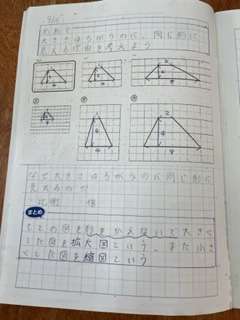 めあて
大きさはちがうのに、同じ形に
見える理由を考えよう
なぜ大きさはちがうのに同じ形に
見えるのか
比例 倍
まとめ
もとの図を形をかえないで大きく
した図を拡大図という。また、小さ
くした図を縮図という